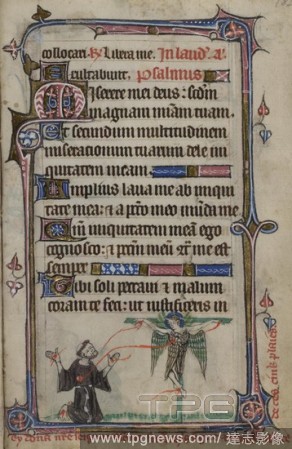 collocari. ꝶ Libera me. In laud. a.
Exultabunt. psalmus
Miserere mei deus: scdm
magnam miam tuam.
Et secundum multitudinem
miserationum tuarum dele ini
quitatem meam.
Amplius laua me ab iniqui
tate mea: et a pctō meo munda me
iniquitatem meam ego
cognosco: et pctm meū
semper
Tibi soli peccaui et malum
coram te feci: ut iustificeris in
TPG
www.tpgnews.com / 達志影像